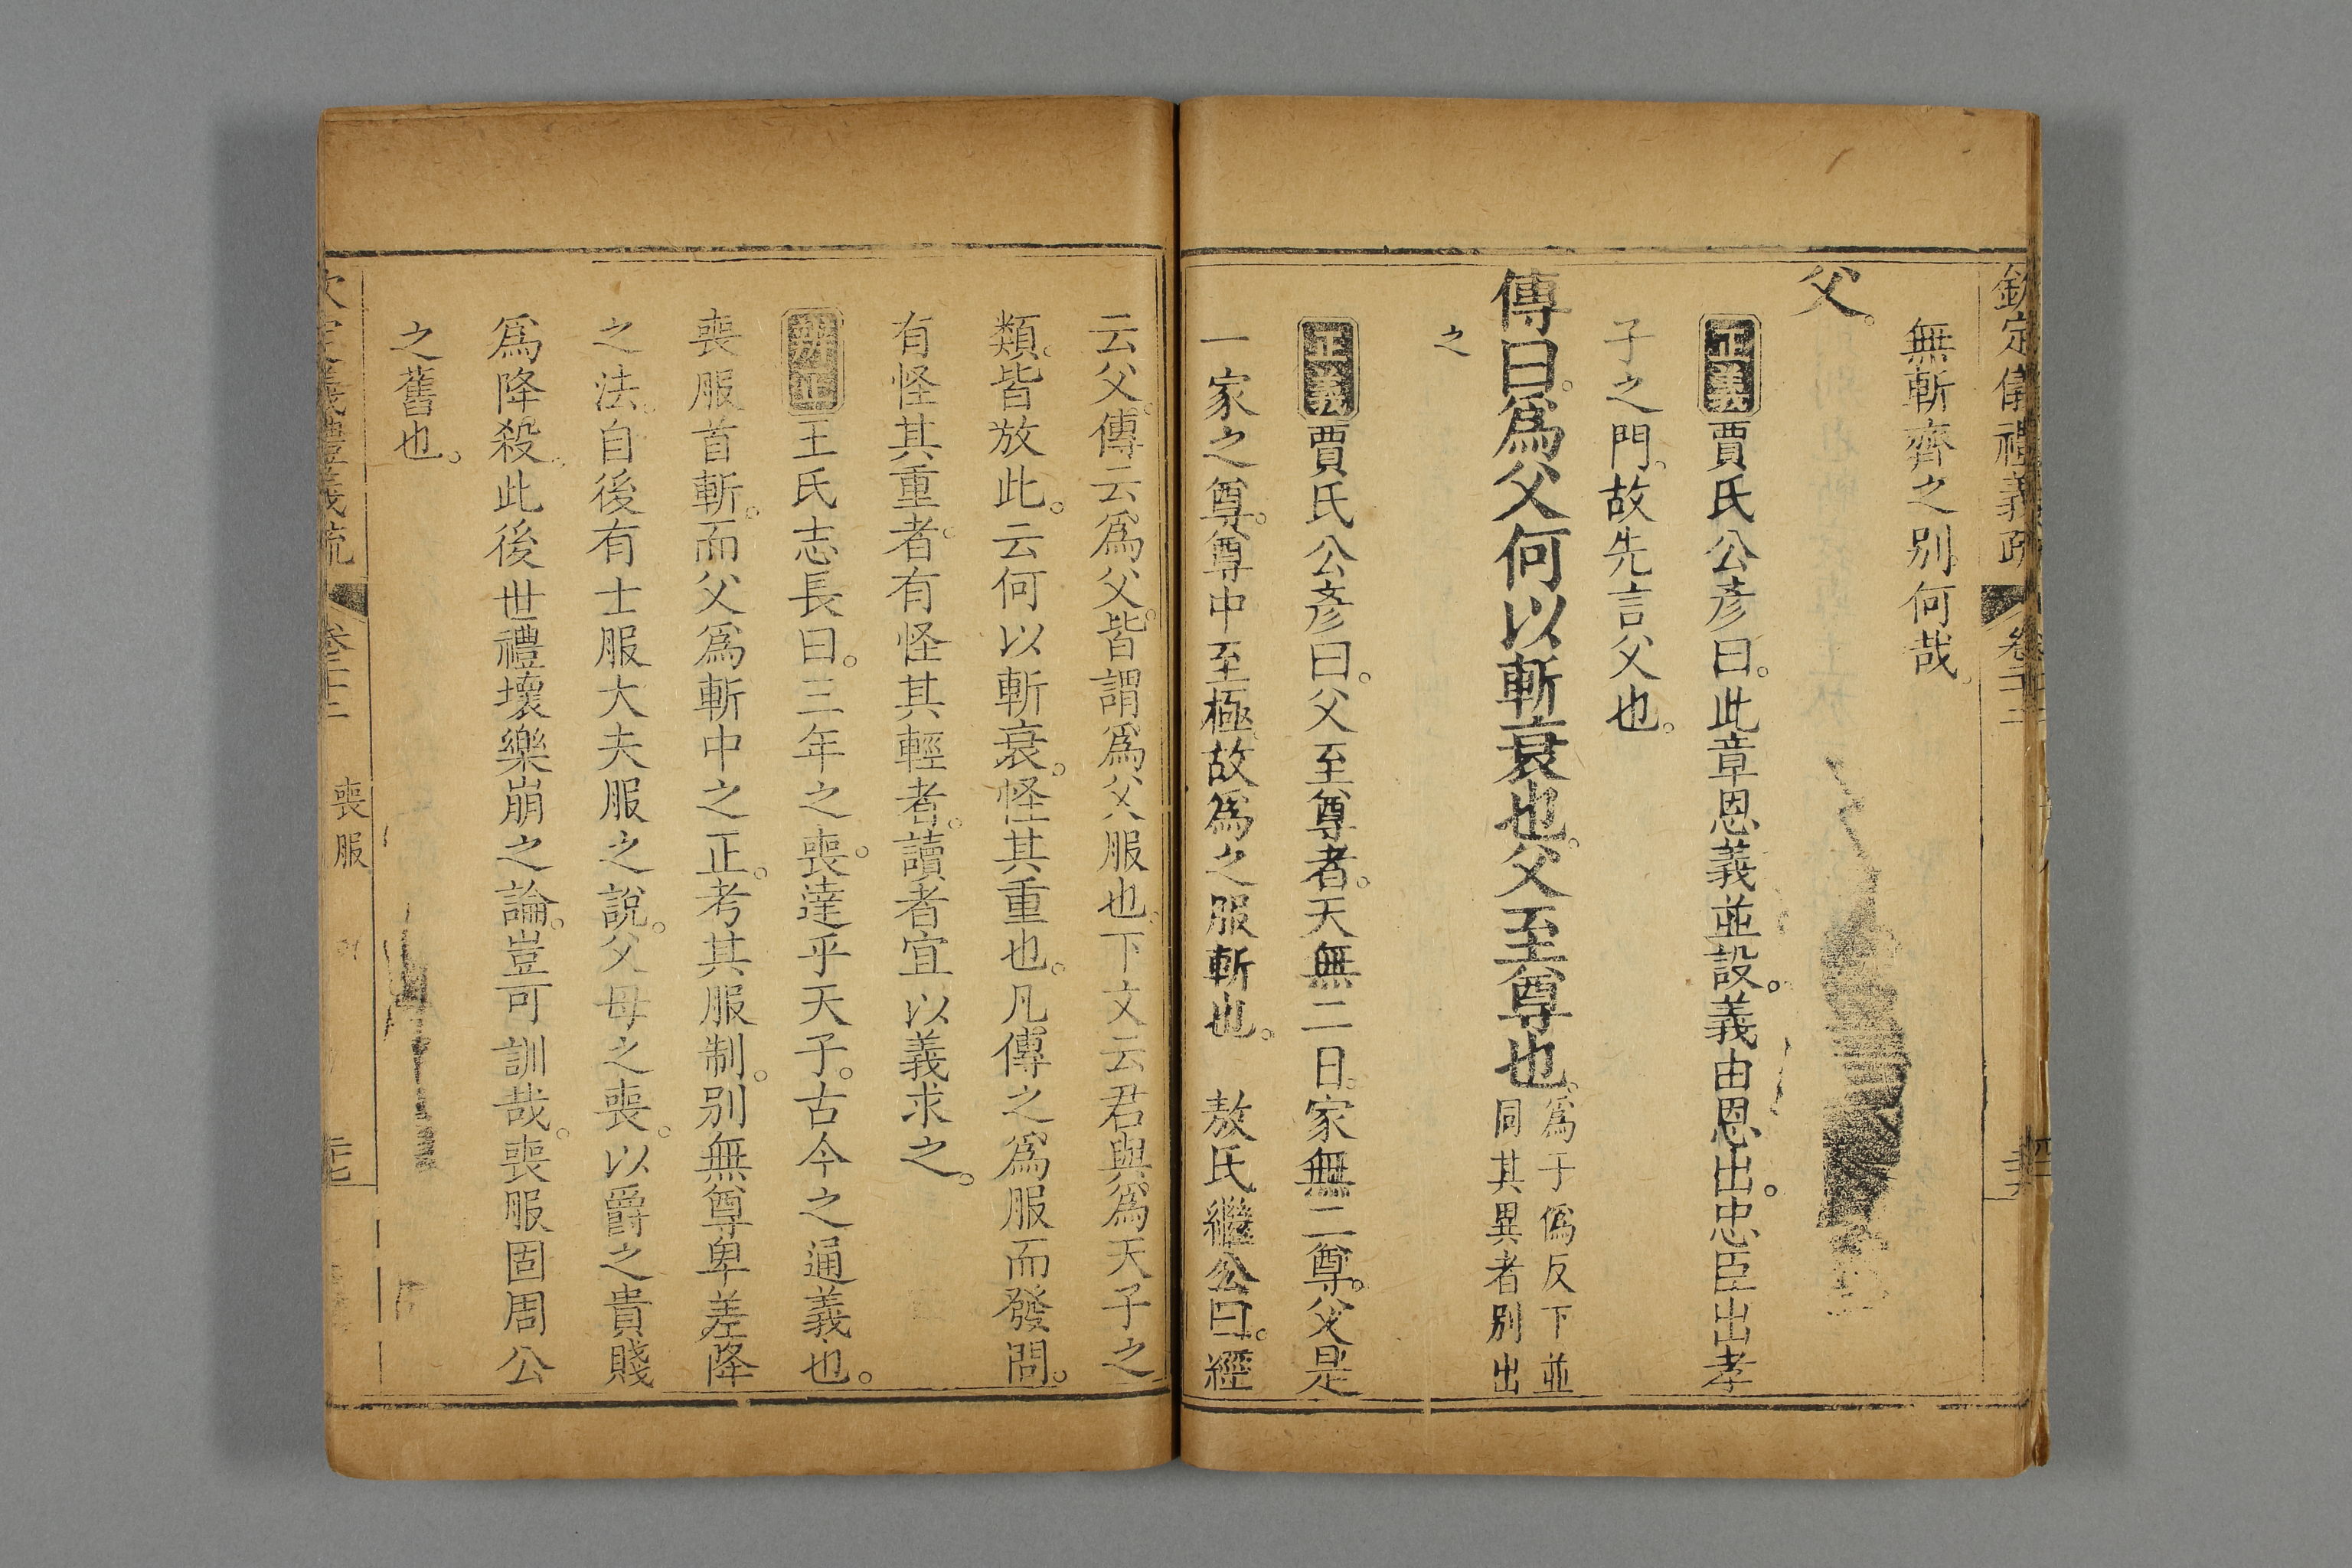 欽定儀禮義疏 卷二十二
無斬齊之別何哉
父。
正義賈氏公彥曰。此章恩義並設。義由恩出。忠臣出孝
子之門。故先言父也。
傳曰。爲父何以斬衰也。父至尊也。爲于僞反下並
同其異者別出
之
正義賈氏公彥曰。父至尊者。天無二日。家無二尊。父是
一家之尊。尊中至極。故爲之服斬也。 敖氏繼公曰。經
云父。傳云爲父。皆謂爲父服也。下文云君與爲天子之
類。皆放此。云何以斬衰。怪其重也。凡傳之爲服而發問。
有怪其重者。有怪其輕者。讀者宜以義求之。
辨正王氏志長曰。三年之喪。達乎天子。古今之通義也。
喪服首斬。而父爲斬中之正。考其服制。別無尊卑差降
之法。自後有士服大夫服之說。父母之喪。以爵之貴賤
爲降殺。此後世禮壞樂崩之論。豈可訓哉。喪服固周公
之舊也。
欽定儀禮義疏 卷二十二 喪服 三七